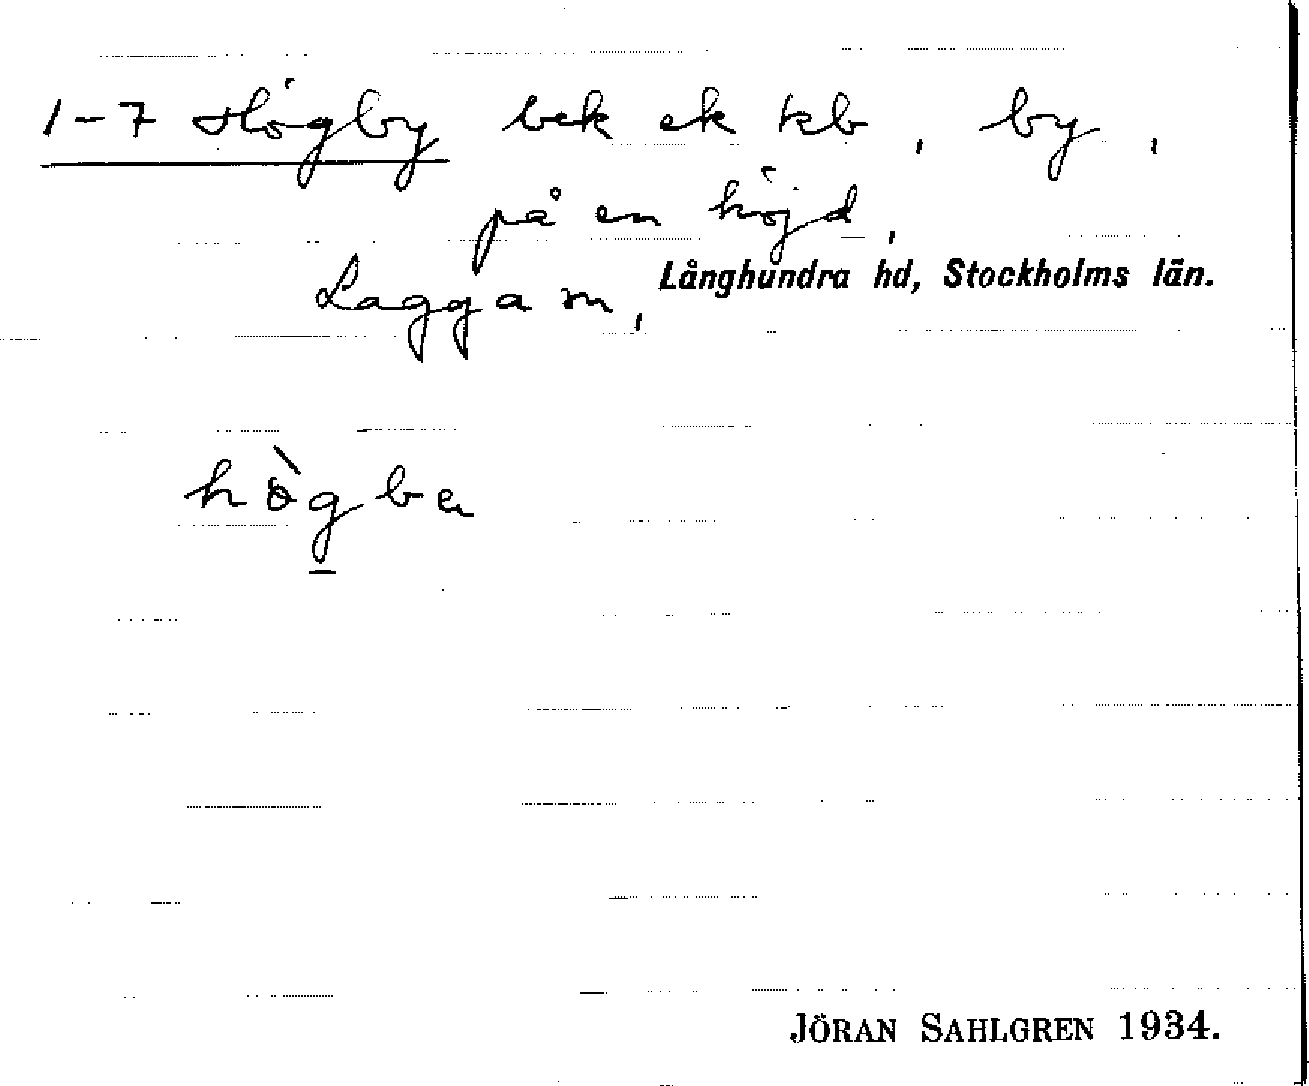 1-7 Högby bek ek kb, by,
på en höjd,
Lagga sn, Långhundra hd, Stockholms län.
hògba
JÖRAN SAHLGREN 1934.